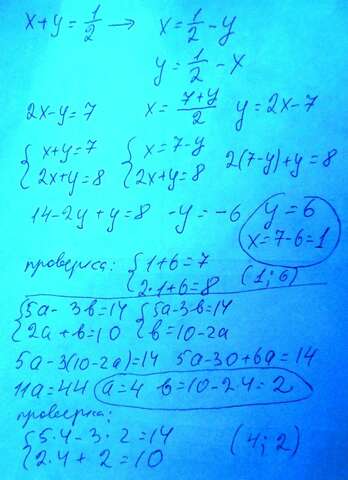 x+y=1/2 → x=1/2-y
y=1/2-x
2x-y=7 x=7+y/2 y=2x-7
{x+y=7 {x=7-y
{2x+y=8 {2x+y=8 2(7-y)+y=8
14-2y+y=8 -y=-6 y=6
x=7-6=1
проверка: {1+6=7 (1;6)
{2·1+6=8
{5a-3b=14 {5a-3b=14
{2a+b=10 {b=10-2a
5a-3(10-2a)=14 5a-30+6a=14
11a=44 a=4 b=10-2·4=2
проверка:
{5·4-3·2=14 (4;2)
{2·4+2=10